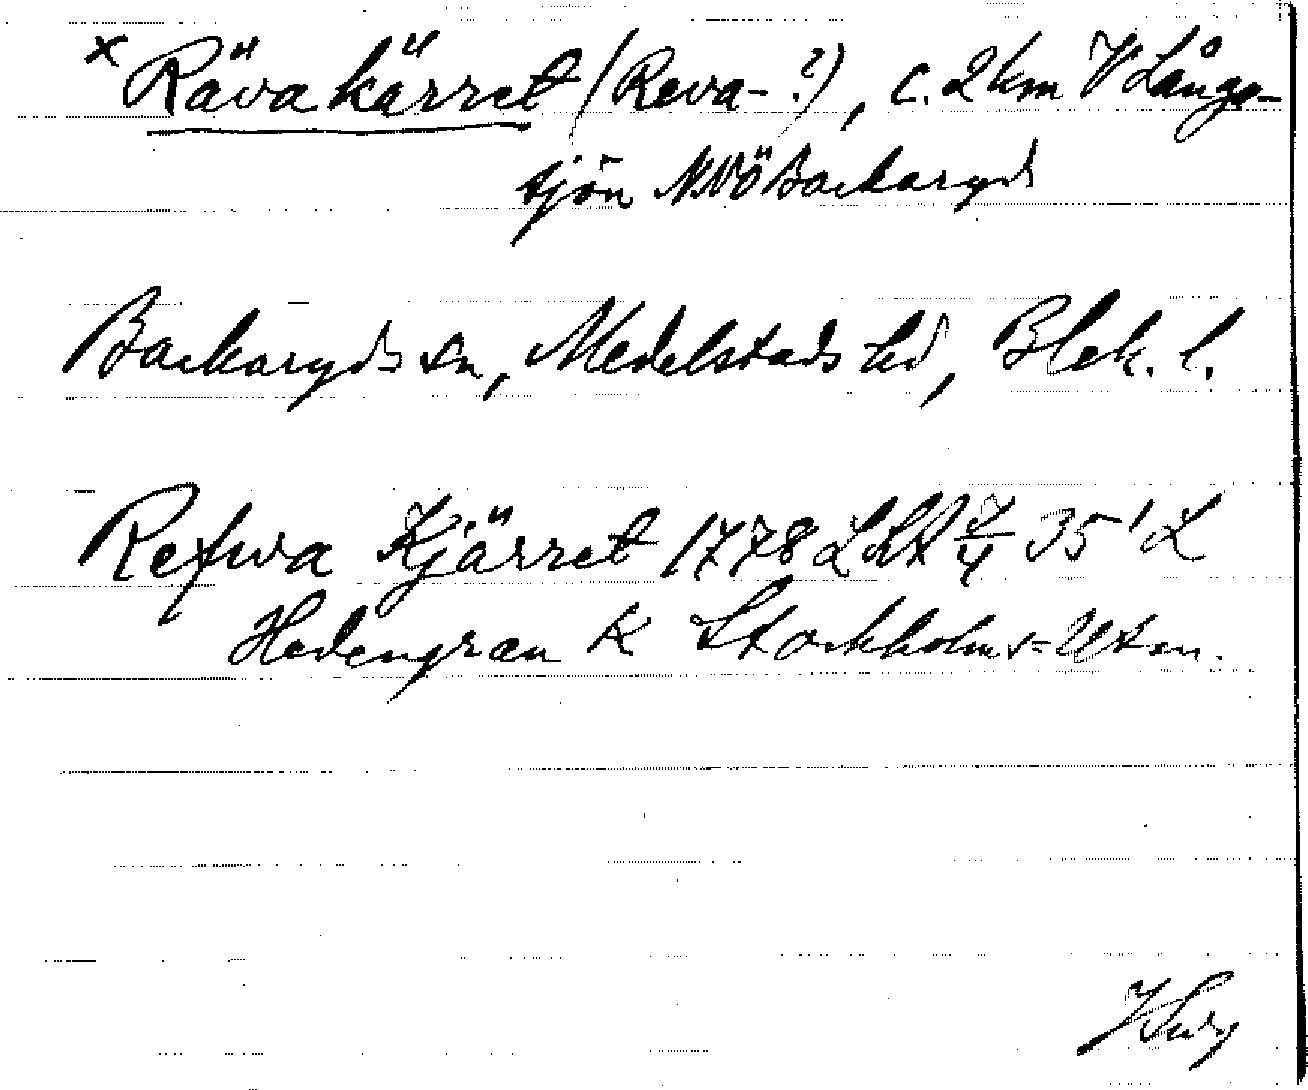 × Rävakärret (Reva-?), c. 2 km V Långa-
sjön NVÖ Backaryd
Backaryds sn, Medelstads hd, Blek. l.
Refwa Kjärret 1778 35' L
Hedengran K Stockholms-Uten.